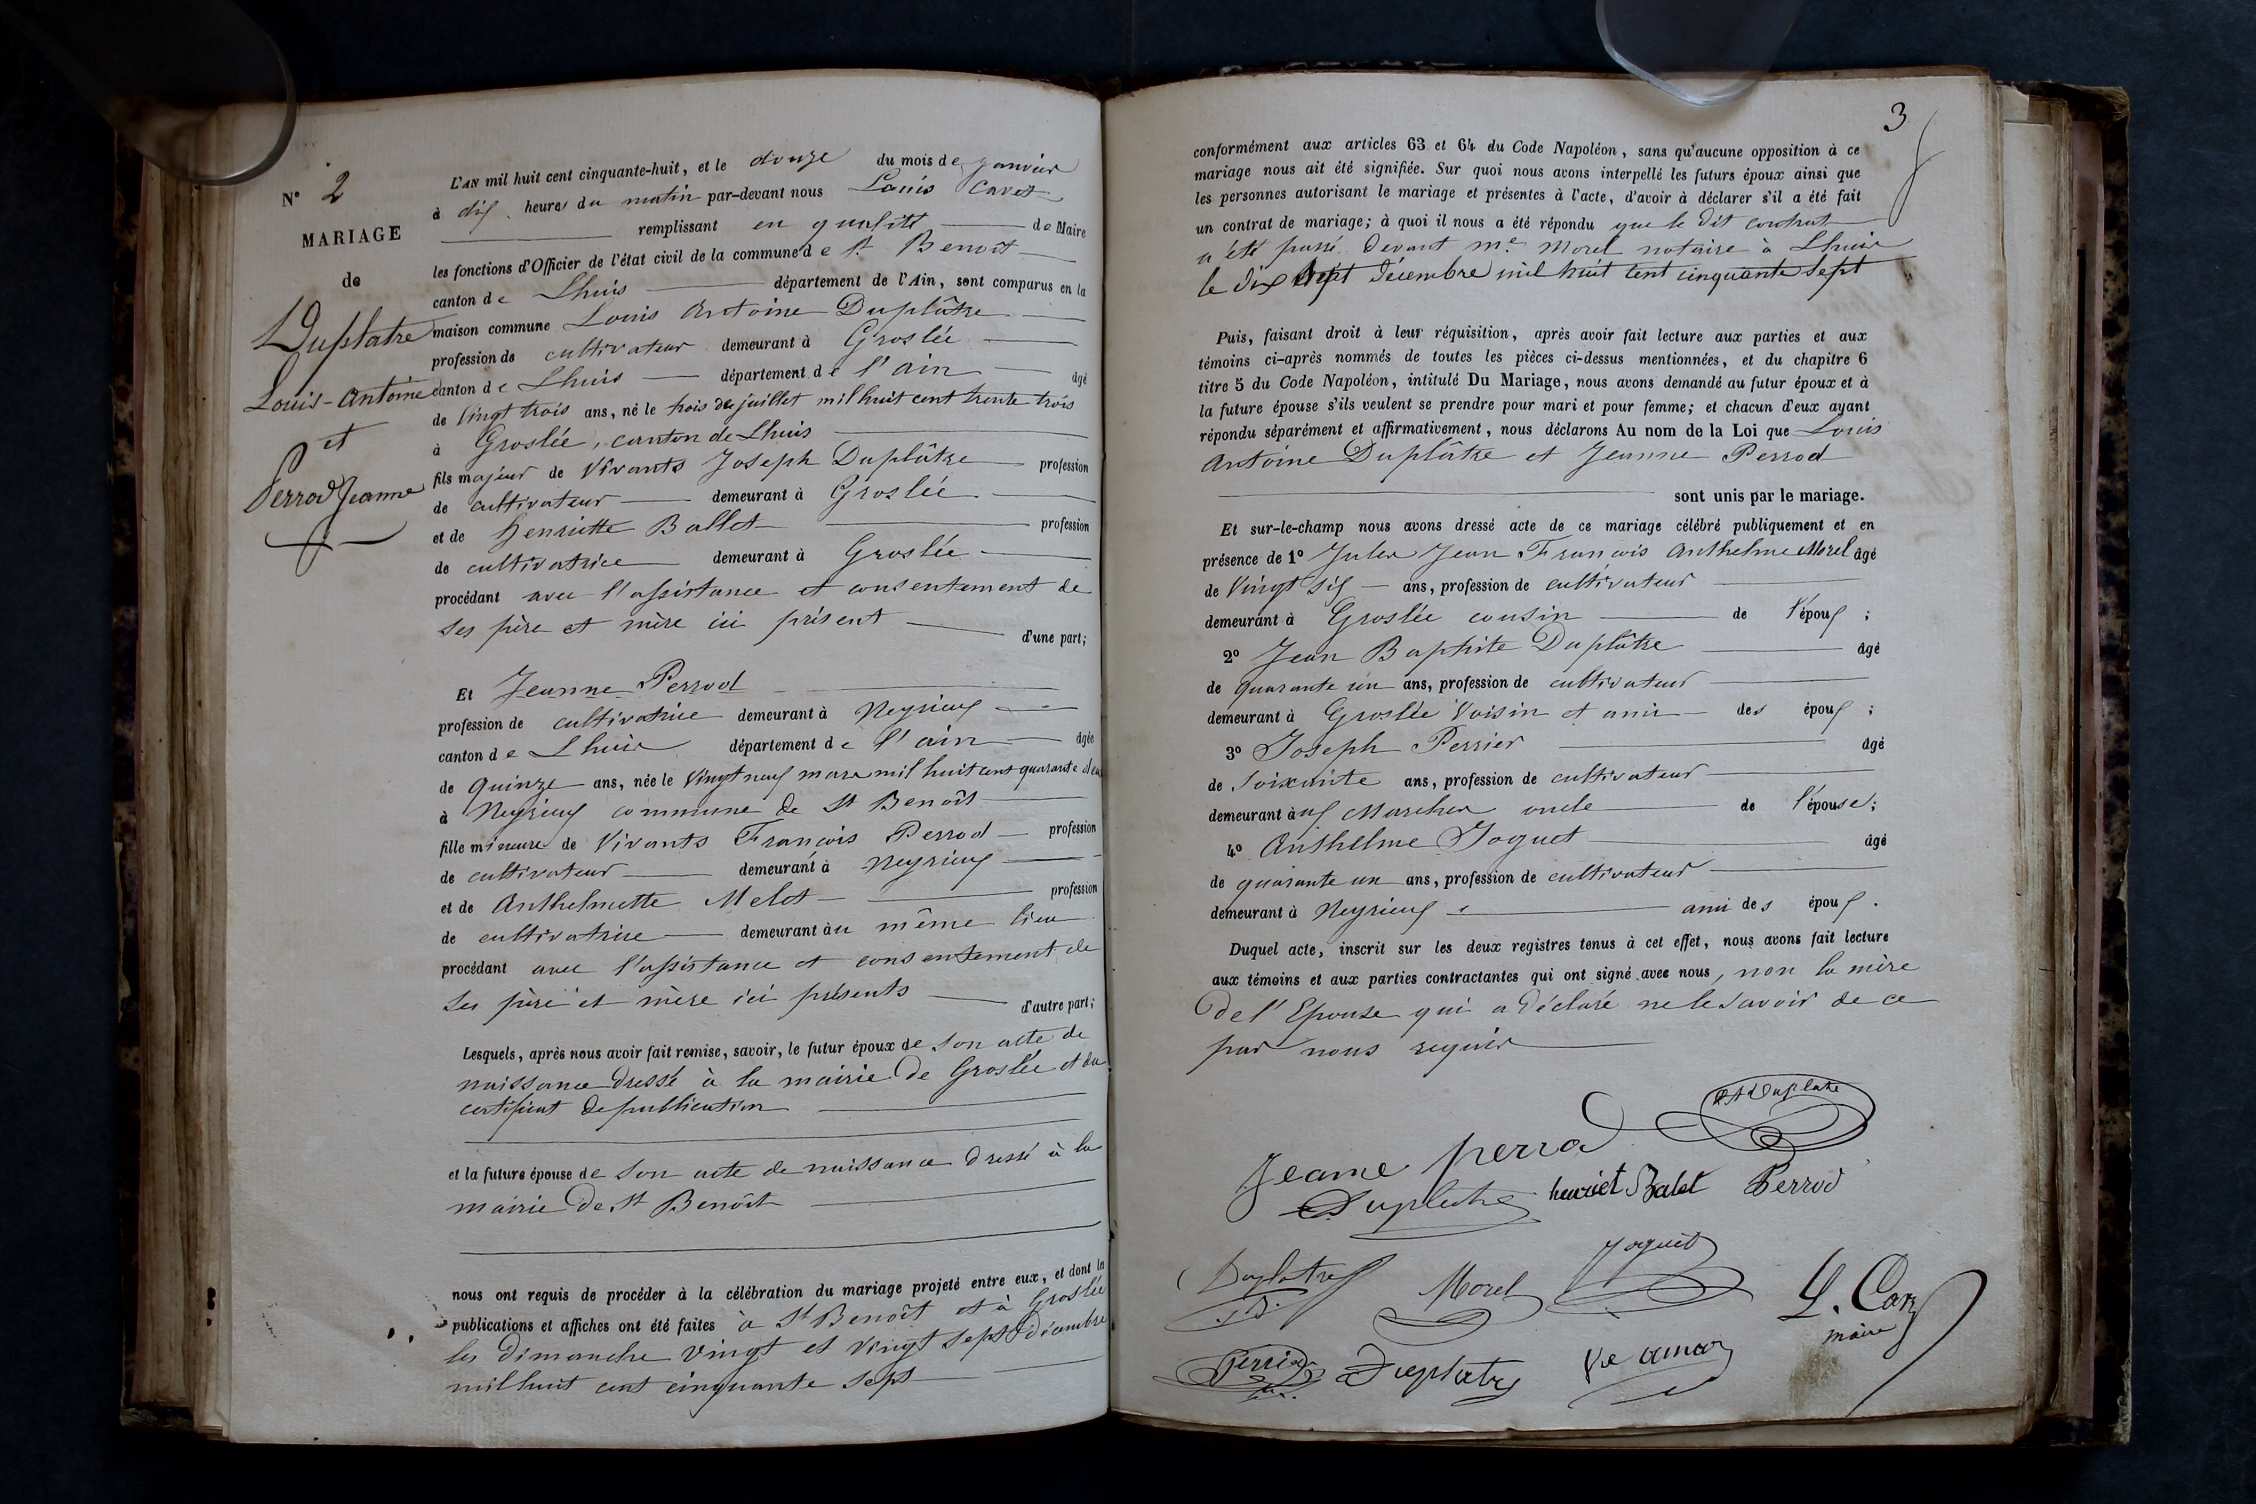 N° 2
MARIAGE
de
Duplatre
Louis-Antoine
et
Perrod Jeanne
L'AN mil huit cent cinquante-huit, et le douze du mois de janvier
à dix heures du matin par-devant nous Louis Cavet
remplissant en qualité de Maire
les fonctions d'Officier de l'état civil de la commune de St Benoit
canton de Lhuis département de l'Ain, sont comparus en la
maison commune Louis Antoine Duplâtre
profession de cultivateur demeurant à Groslée
canton de Lhuis département de l'ain âgé
de Vingt trois ans, né le trois de juillet mil huit cent trente trois
à Groslée, canton de Lhuis
fils majeur de Vivants Joseph Duplâtre profession
de cultivateur demeurant à Groslée
et de henriette Ballet profession
de cultivatrice demeurant à Groslée
procédant avec l'assistance et consentement de
ses père et mère ici présent d'une part;
Et Jeanne Perrod
profession de cultivatrice demeurant à Neyrieux
canton de Lhuis département de l'ain âgée
de quinze ans, née le Vingt neuf mars mil huit cent quarante deux
à Neyrieux commune de St Benoît
fille mineure de Vivants François Perrod profession
de cultivateur demeurant à Neyrieux
et de Anthelmette Melot profession
de cultivatrice demeurant au même lieu
procédant avec l'assistance et consentement de
ses père et mère ici présents d'autre part;
Lesquels, après nous avoir fait remise, savoir, le futur époux de son acte de
naissance dressé à la mairie de Groslée et du
certificat de publication
et la future épouse de son acte de naissance dressé à la
mairie de St Benoît
nous ont requis de procéder à la célébration du mariage projeté entre eux, et dont les
publications et affiches ont été faites à St Benoît et à Groslée
les dimanche vingt et vingt sept décembre
mil huit cent cinquante sept
3
conformément aux articles 63 et 64 du Code Napoléon, sans qu'aucune opposition à ce
mariage nous ait été signifiée. Sur quoi nous avons interpellé les futurs époux ainsi que
les personnes autorisant le mariage et présentes à l'acte, d'avoir à déclarer s'il a été fait
un contrat de mariage; à quoi il nous a été répondu que le dit contrat
a été passé devant me Morel notaire à Lhuis
le dix sept décembre mil huit cent cinquante sept
Puis, faisant droit à leur réquisition, après avoir fait lecture aux parties et aux
témoins ci-après nommés de toutes les pièces ci-dessus mentionnées, et du chapitre 6
titre 5 du Code Napoléon, intitulé Du Mariage, nous avons demandé au futur époux et à
la future épouse s'ils veulent se prendre pour mari et pour femme; et chacun d'eux ayant
répondu séparément et affirmativement, nous déclarons Au nom de la Loi que Louis
Antoine Duplâtre et Jeanne Perrod
sont unis par le mariage.
Et sur-le-champ nous avons dressé acte de ce mariage célébré publiquement et en
présence de 1° Jules Jean François Anthelme Morel âgé
de Vingt six ans, profession de cultivateur
demeurant à Groslée cousin de l'époux ;
2° Jean Baptiste Duplâtre âgé
de quarante un ans, profession de cultivateur
demeurant à Groslée Voisin et ami des époux ;
3° Joseph Perrier âgé
de Soixante ans, profession de cultivateur
demeurant aux Marches oncle de l'épouse;
4° Anthelme Joguet âgé
de quarante un ans, profession de cultivateur
demeurant à Neyrieux ami des époux.
Duquel acte, inscrit sur les deux registres tenus à cet effet, nous avons fait lecture
aux témoins et aux parties contractantes qui ont signé avec nous, non la mère
de l'Epouse qui a déclaré ne le savoir de ce
par nous requise
Duplatre
Jeanne perrod
Duplatre henriet Balet Perrod
Duplatre Morel Joguet
maire
Duplatre